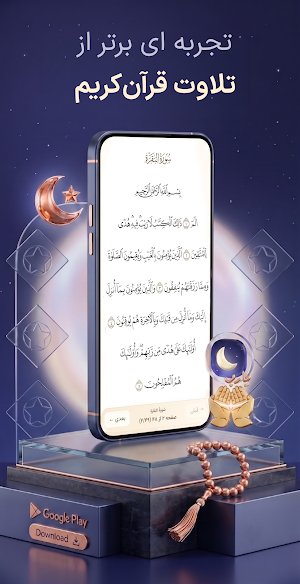 تجربه ای برتر از
تلاوت قرآن‌کریم
سُورَةُ البَقَرَةِ
بِسْمِ اللَّهِ الرَّحْمَٰنِ الرَّحِيمِ
الٓمٓ ۝١ ذَٰلِكَ الْكِتَابُ لَا رَيْبَ فِيهِ هُدًى
لِّلْمُتَّقِينَ ۝٢ الَّذِينَ يُؤْمِنُونَ بِالْغَيْبِ وَيُقِيمُونَ الصَّلَاةَ
وَمِمَّا رَزَقْنَاهُمْ يُنفِقُونَ ۝٣ وَالَّذِينَ يُؤْمِنُونَ بِمَا أُنزِلَ
إِلَيْكَ وَمَا أُنزِلَ مِن قَبْلِكَ وَبِالْآخِرَةِ هُمْ يُوقِنُونَ ۝٤
أُولَٰئِكَ عَلَىٰ هُدًى مِّن رَّبِّهِمْ وَأُولَٰئِكَ
هُمُ الْمُفْلِحُونَ ۝٥
سورة البقرة
بعدی
قبلی
Google Play
Download